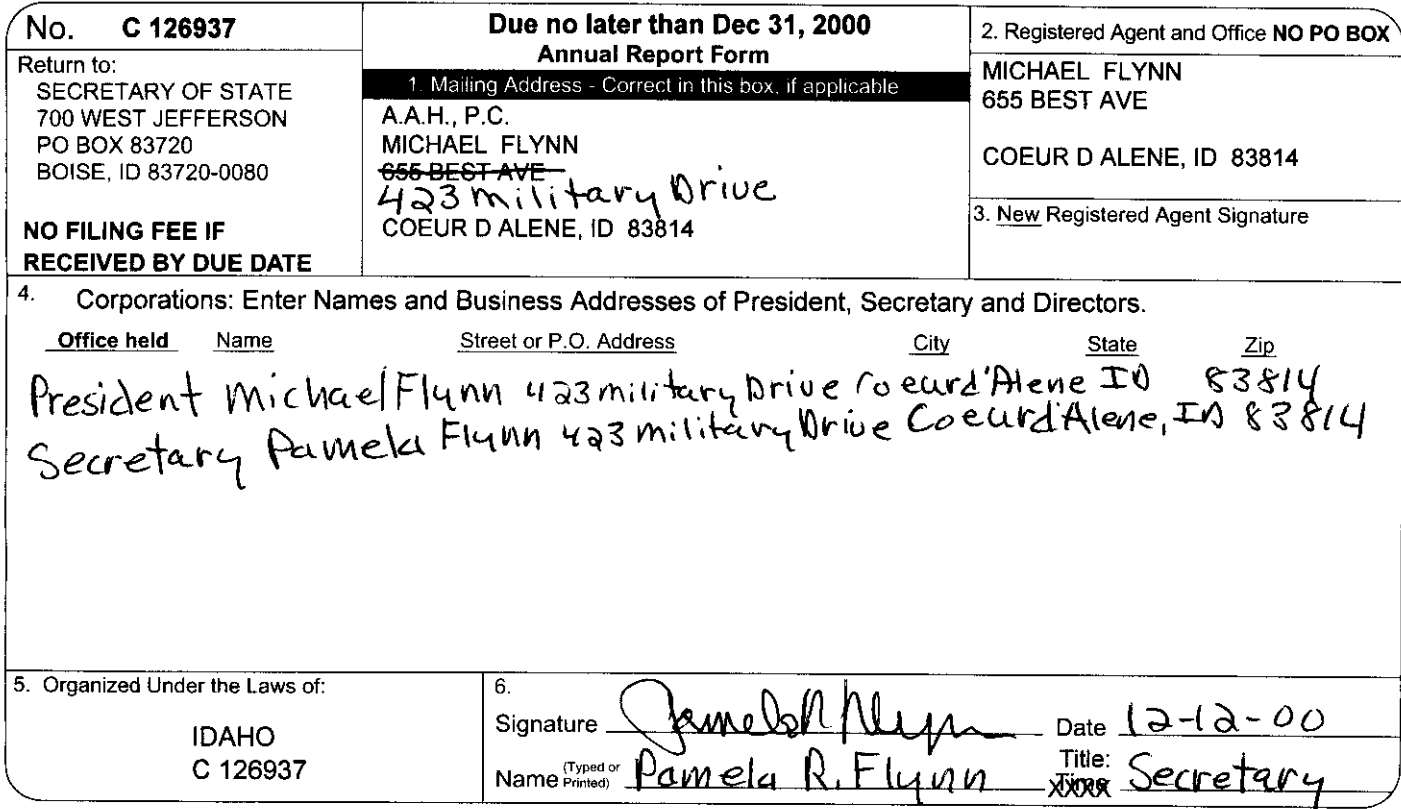 No. C 126937
Return to:
SECRETARY OF STATE
700 WEST JEFFERSON
PO BOX 83720
BOISE, ID 83720-0080
NO FILING FEE IF
RECEIVED BY DUE DATE
Due no later than Dec 31, 2000
Annual Report Form
1. Mailing Address - Correct in this box, if applicable
A.A.H., P.C.
MICHAEL FLYNN
655 BEST AVE
423 Military Drive
COEUR D ALENE, ID 83814
2. Registered Agent and Office NO PO BOX
MICHAEL FLYNN
655 BEST AVE
COEUR D ALENE, ID 83814
3. New Registered Agent Signature
4. Corporations: Enter Names and Business Addresses of President, Secretary and Directors.
Office held Name Street or P.O. Address City State Zip
President Michael Flynn 423 military Drive Coeurd'Alene ID 83814
Secretary Pamela Flynn 423 military Drive Coeurd'Alene, ID 83814
5. Organized Under the Laws of:
IDAHO
C 126937
6.
Signature Pamela R Flynn Date 12-12-00
Name (Typed or Printed) Pamela R. Flynn Title: Secretary